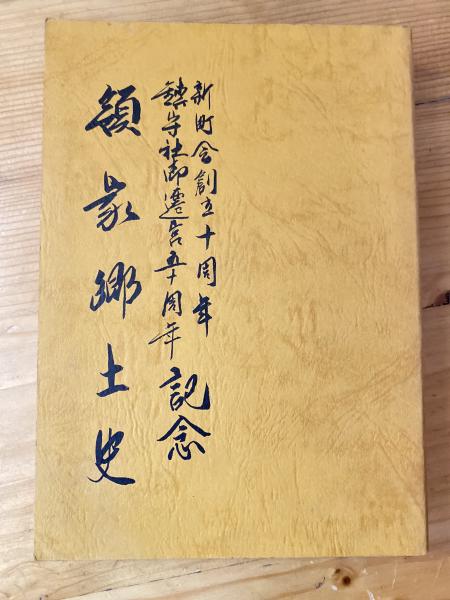 新町会創立十周年
鎮守社御遷宮五十周年
記念
領家郷土史